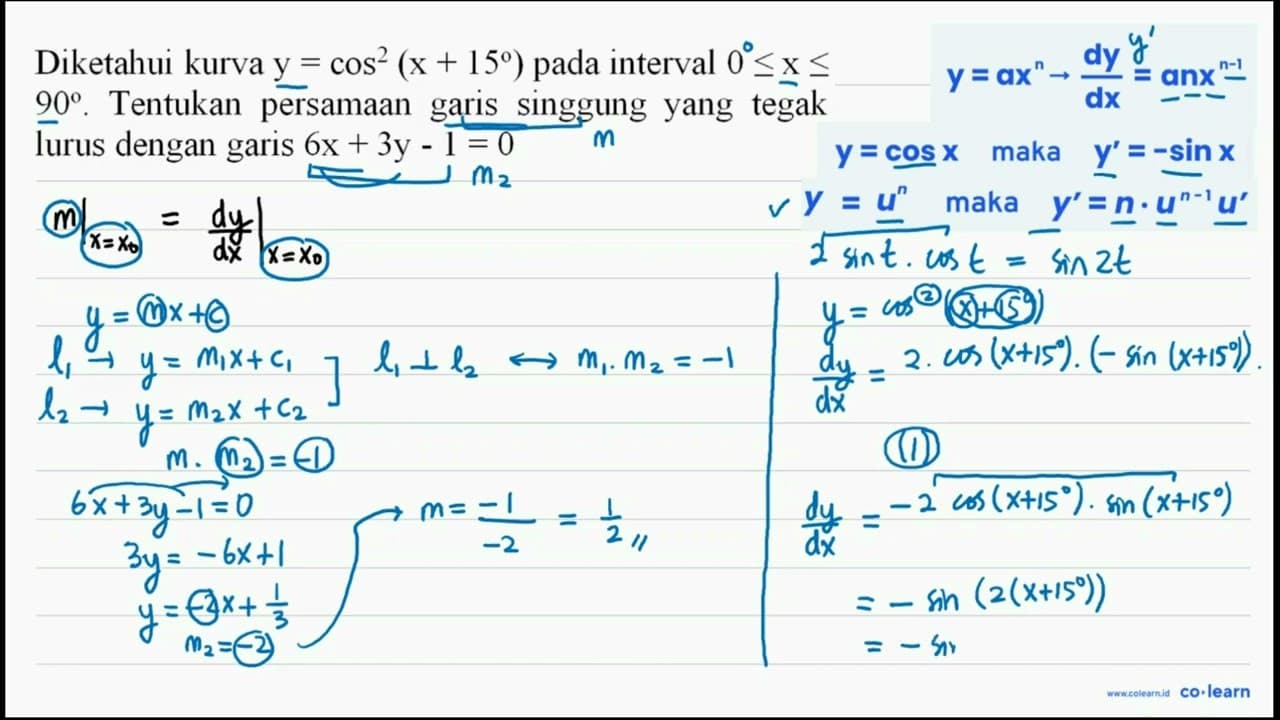 Diketahui kurva y = cos² (x + 15°) pada interval 0° ≤ x ≤
90°. Tentukan persamaan garis singgung yang tegak
lurus dengan garis 6x + 3y - 1 = 0
m
m₂
y = axⁿ → dy/dx = anxⁿ⁻¹
y'
y = cos x maka y' = -sin x
✓ y = uⁿ maka y' = n · uⁿ⁻¹ u'
m|x=x₀ = dy/dx|x=x₀
y = mx+c
l₁ → y = m₁x+c₁
l₂ → y = m₂x+c₂
l₁ ⊥ l₂ ↔ m₁. m₂ = -1
m. m₂ = -1
6x+3y-1=0
3y = -6x+1
y = -2x+ 1/3
m₂ = -2
m = -1/-2 = 1/2 //
2 sin t . cos t = sin 2t
y = cos² (x+15°)
dy/dx = 2. cos (x+15°). (- sin (x+15°)).
(1)
dy/dx = -2 cos (x+15°). sin (x+15°)
= - sin (2(x+15°))
= - sin
www.colearn.id co·learn